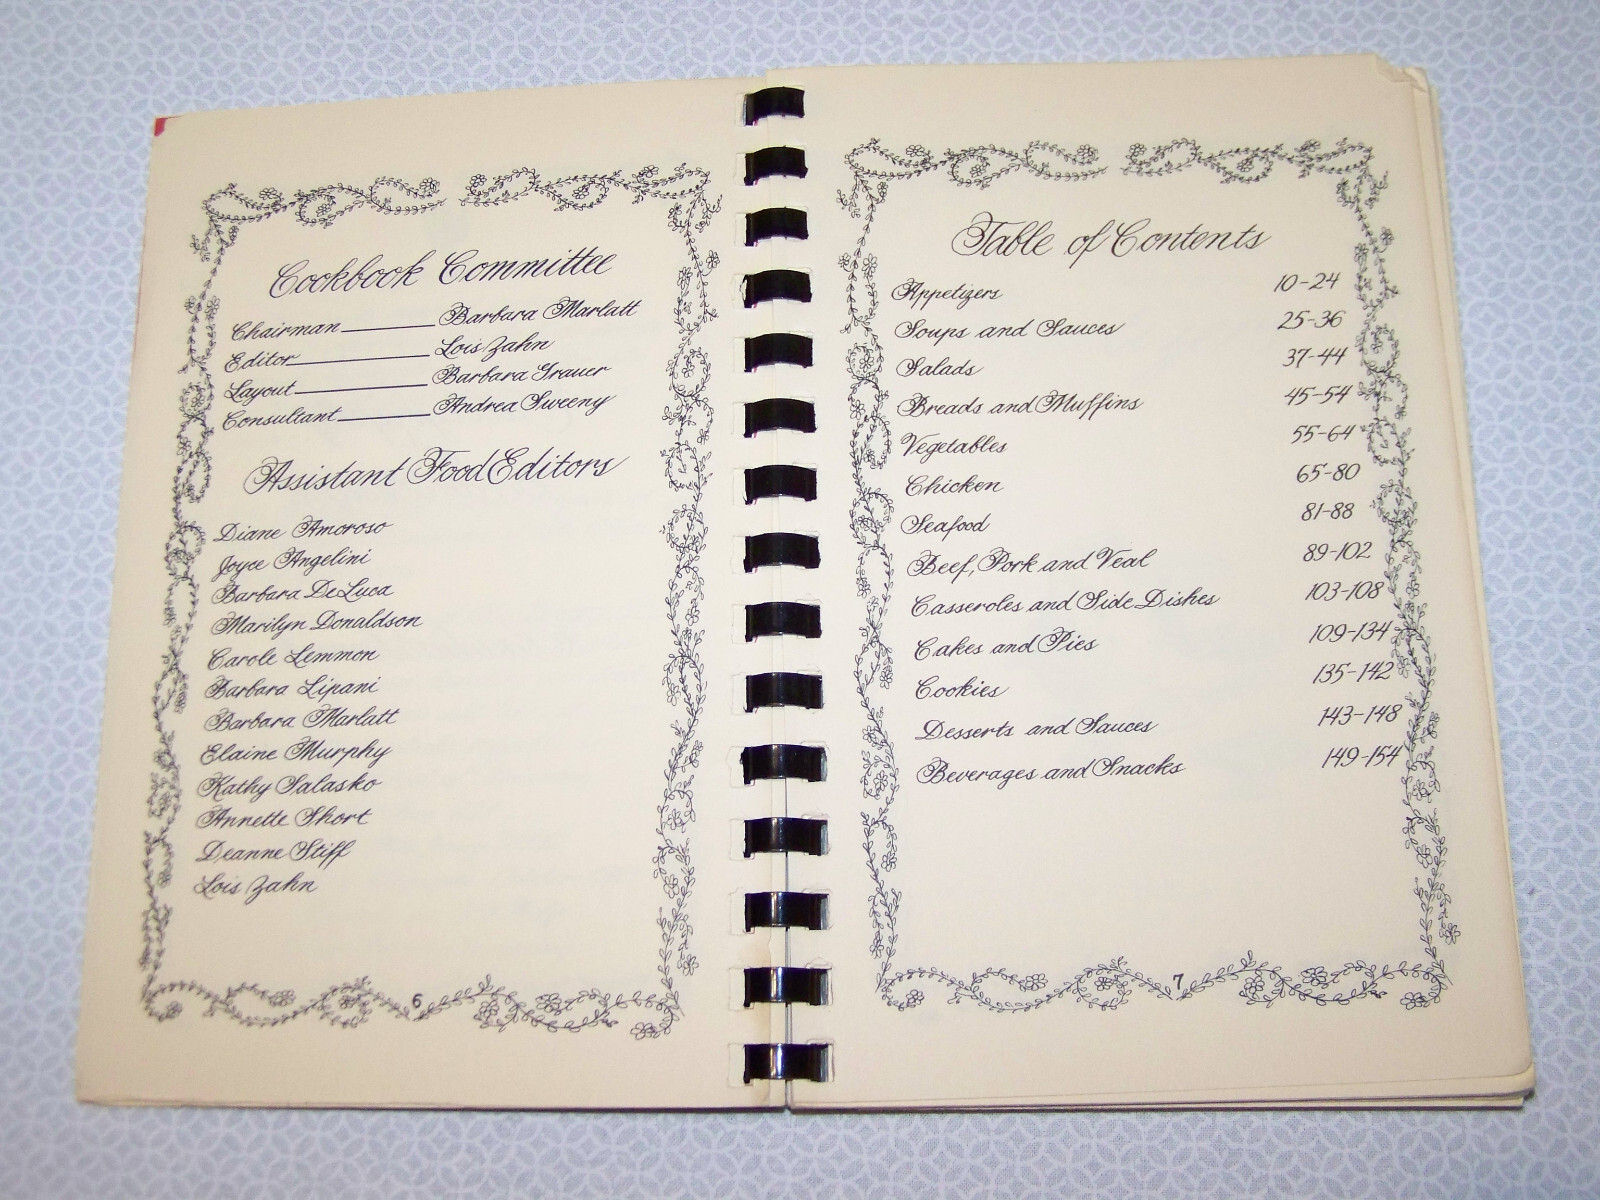 Cookbook Committee
Chairman Barbara Marlatt
Editor Lois Zahn
Layout Barbara Grauer
Consultant Andrea Sweeny
Assistant Food Editors
Diane Amoroso
Joyce Angelini
Barbara DeLuca
Marilyn Donaldson
Carole Lemmon
Barbara Lipani
Barbara Marlatt
Elaine Murphy
Kathy Salasko
Annette Short
Deanne Stiff
Lois Zahn
6
Table of Contents
Appetizers 10-24
Soups and Sauces 25-36
Salads 37-44
Breads and Muffins 45-54
Vegetables 55-64
Chicken 65-80
Seafood 81-88
Beef, Pork and Veal 89-102
Casseroles and Side Dishes 103-108
Cakes and Pies 109-134
Cookies 135-142
Desserts and Sauces 143-148
Beverages and Snacks 149-154
7